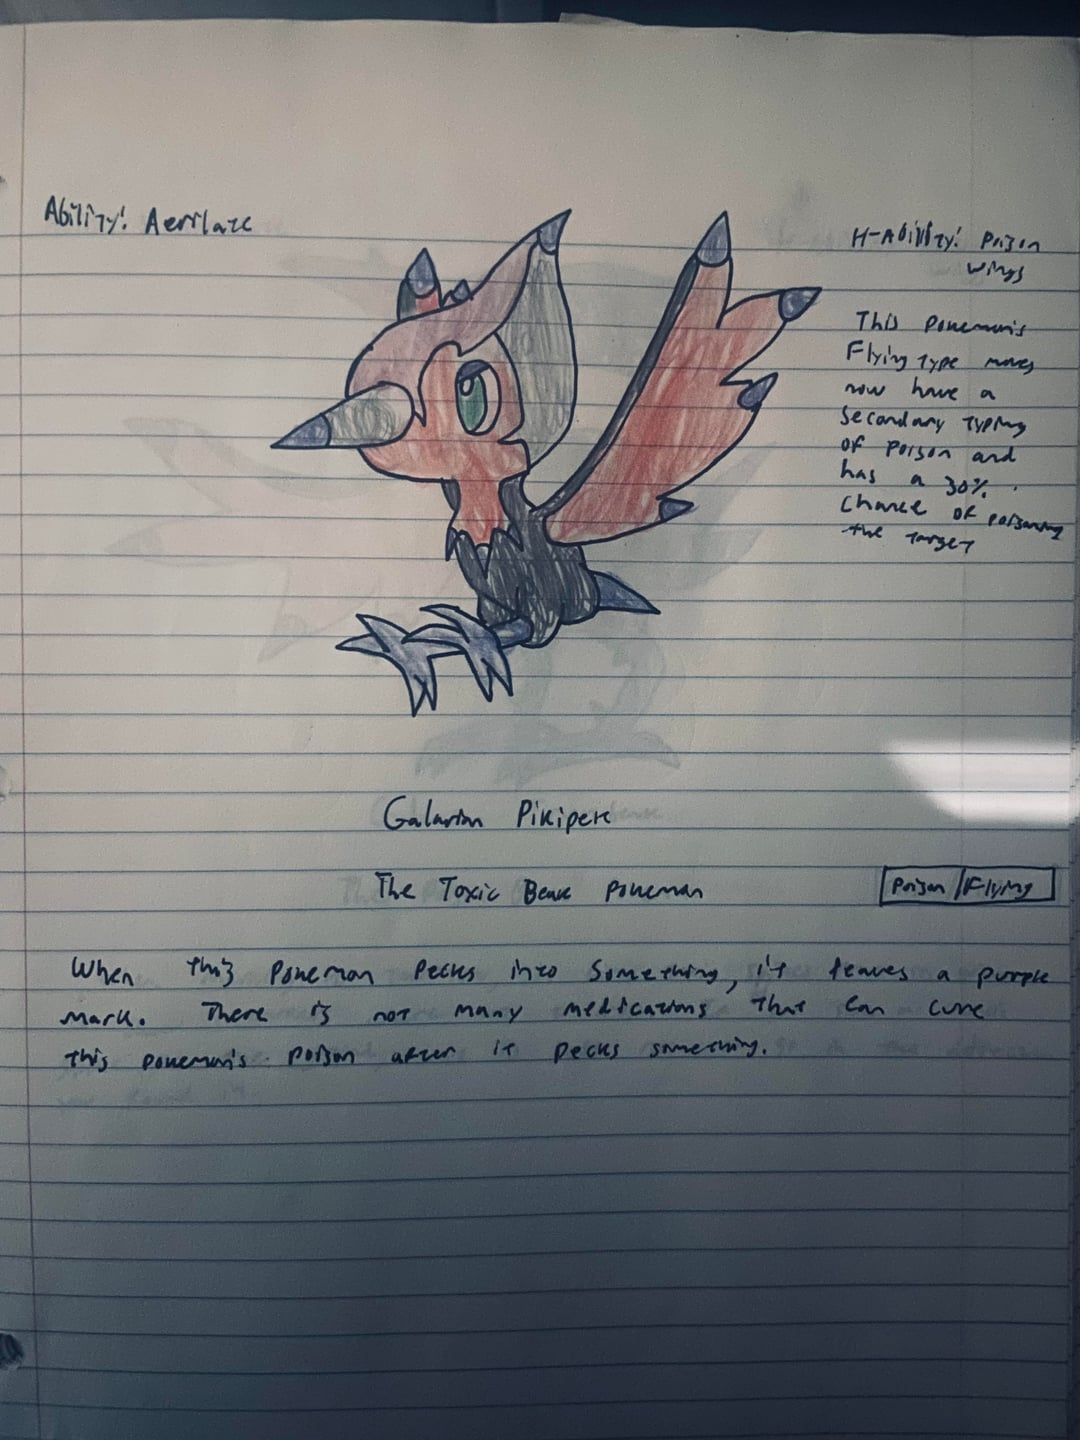 Ability: Aerilate
H-Ability: Poison
Wings
This Pokemon's
Flying Type moves
now have a
Secondary Typing
of Poison and
has a 30%
Chance of poisoning
the target
Galarian Pikipek
The Toxic Beak Pokemon
Poison/Flying
When this Pokemon Pecks into Something, it leaves a purple
Mark. There is not many medications that can cure
this Pokemon's Poison after it pecks something.